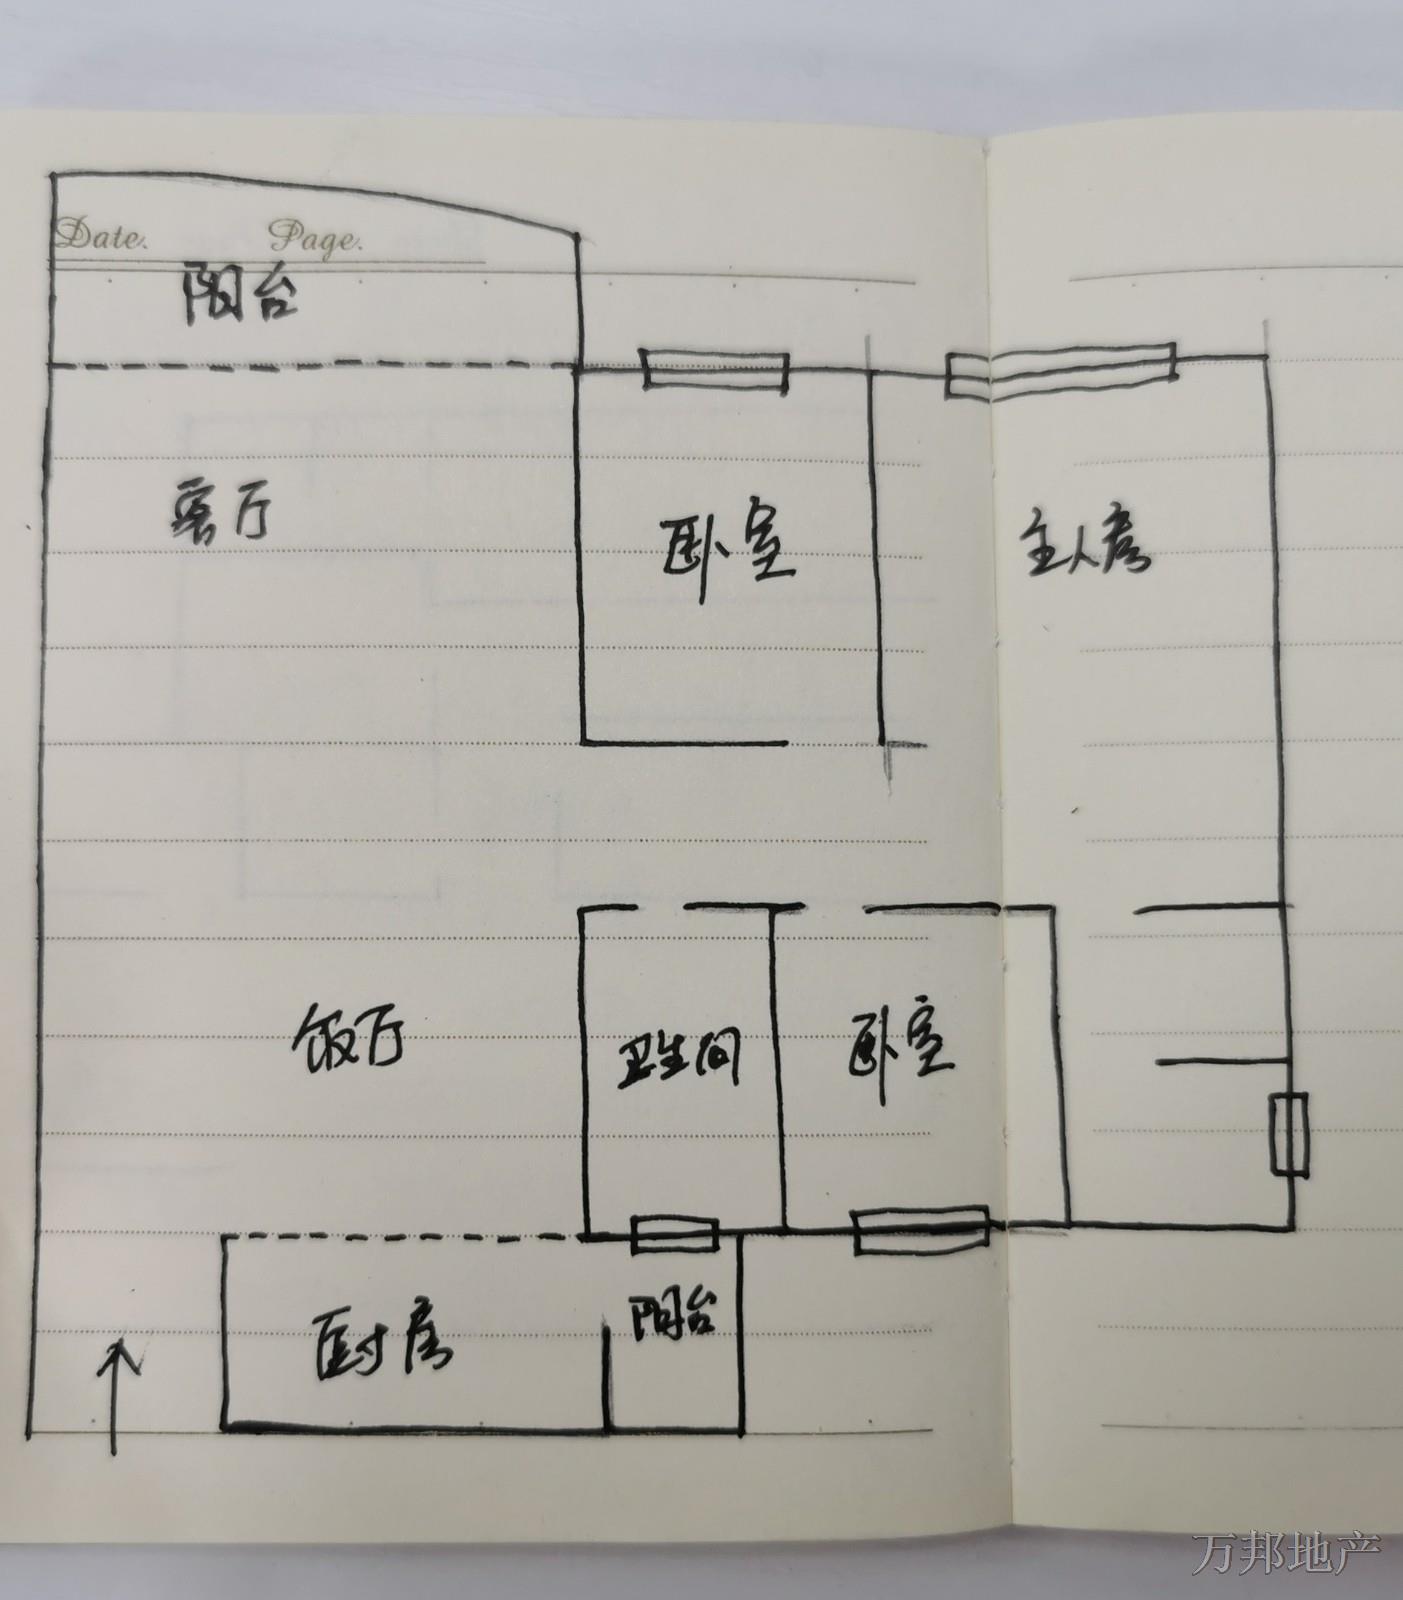 Date. Page.
阳台
客厅
卧室
主人房
饭厅
卫生间
卧室
厨房
阳台
万邦地产